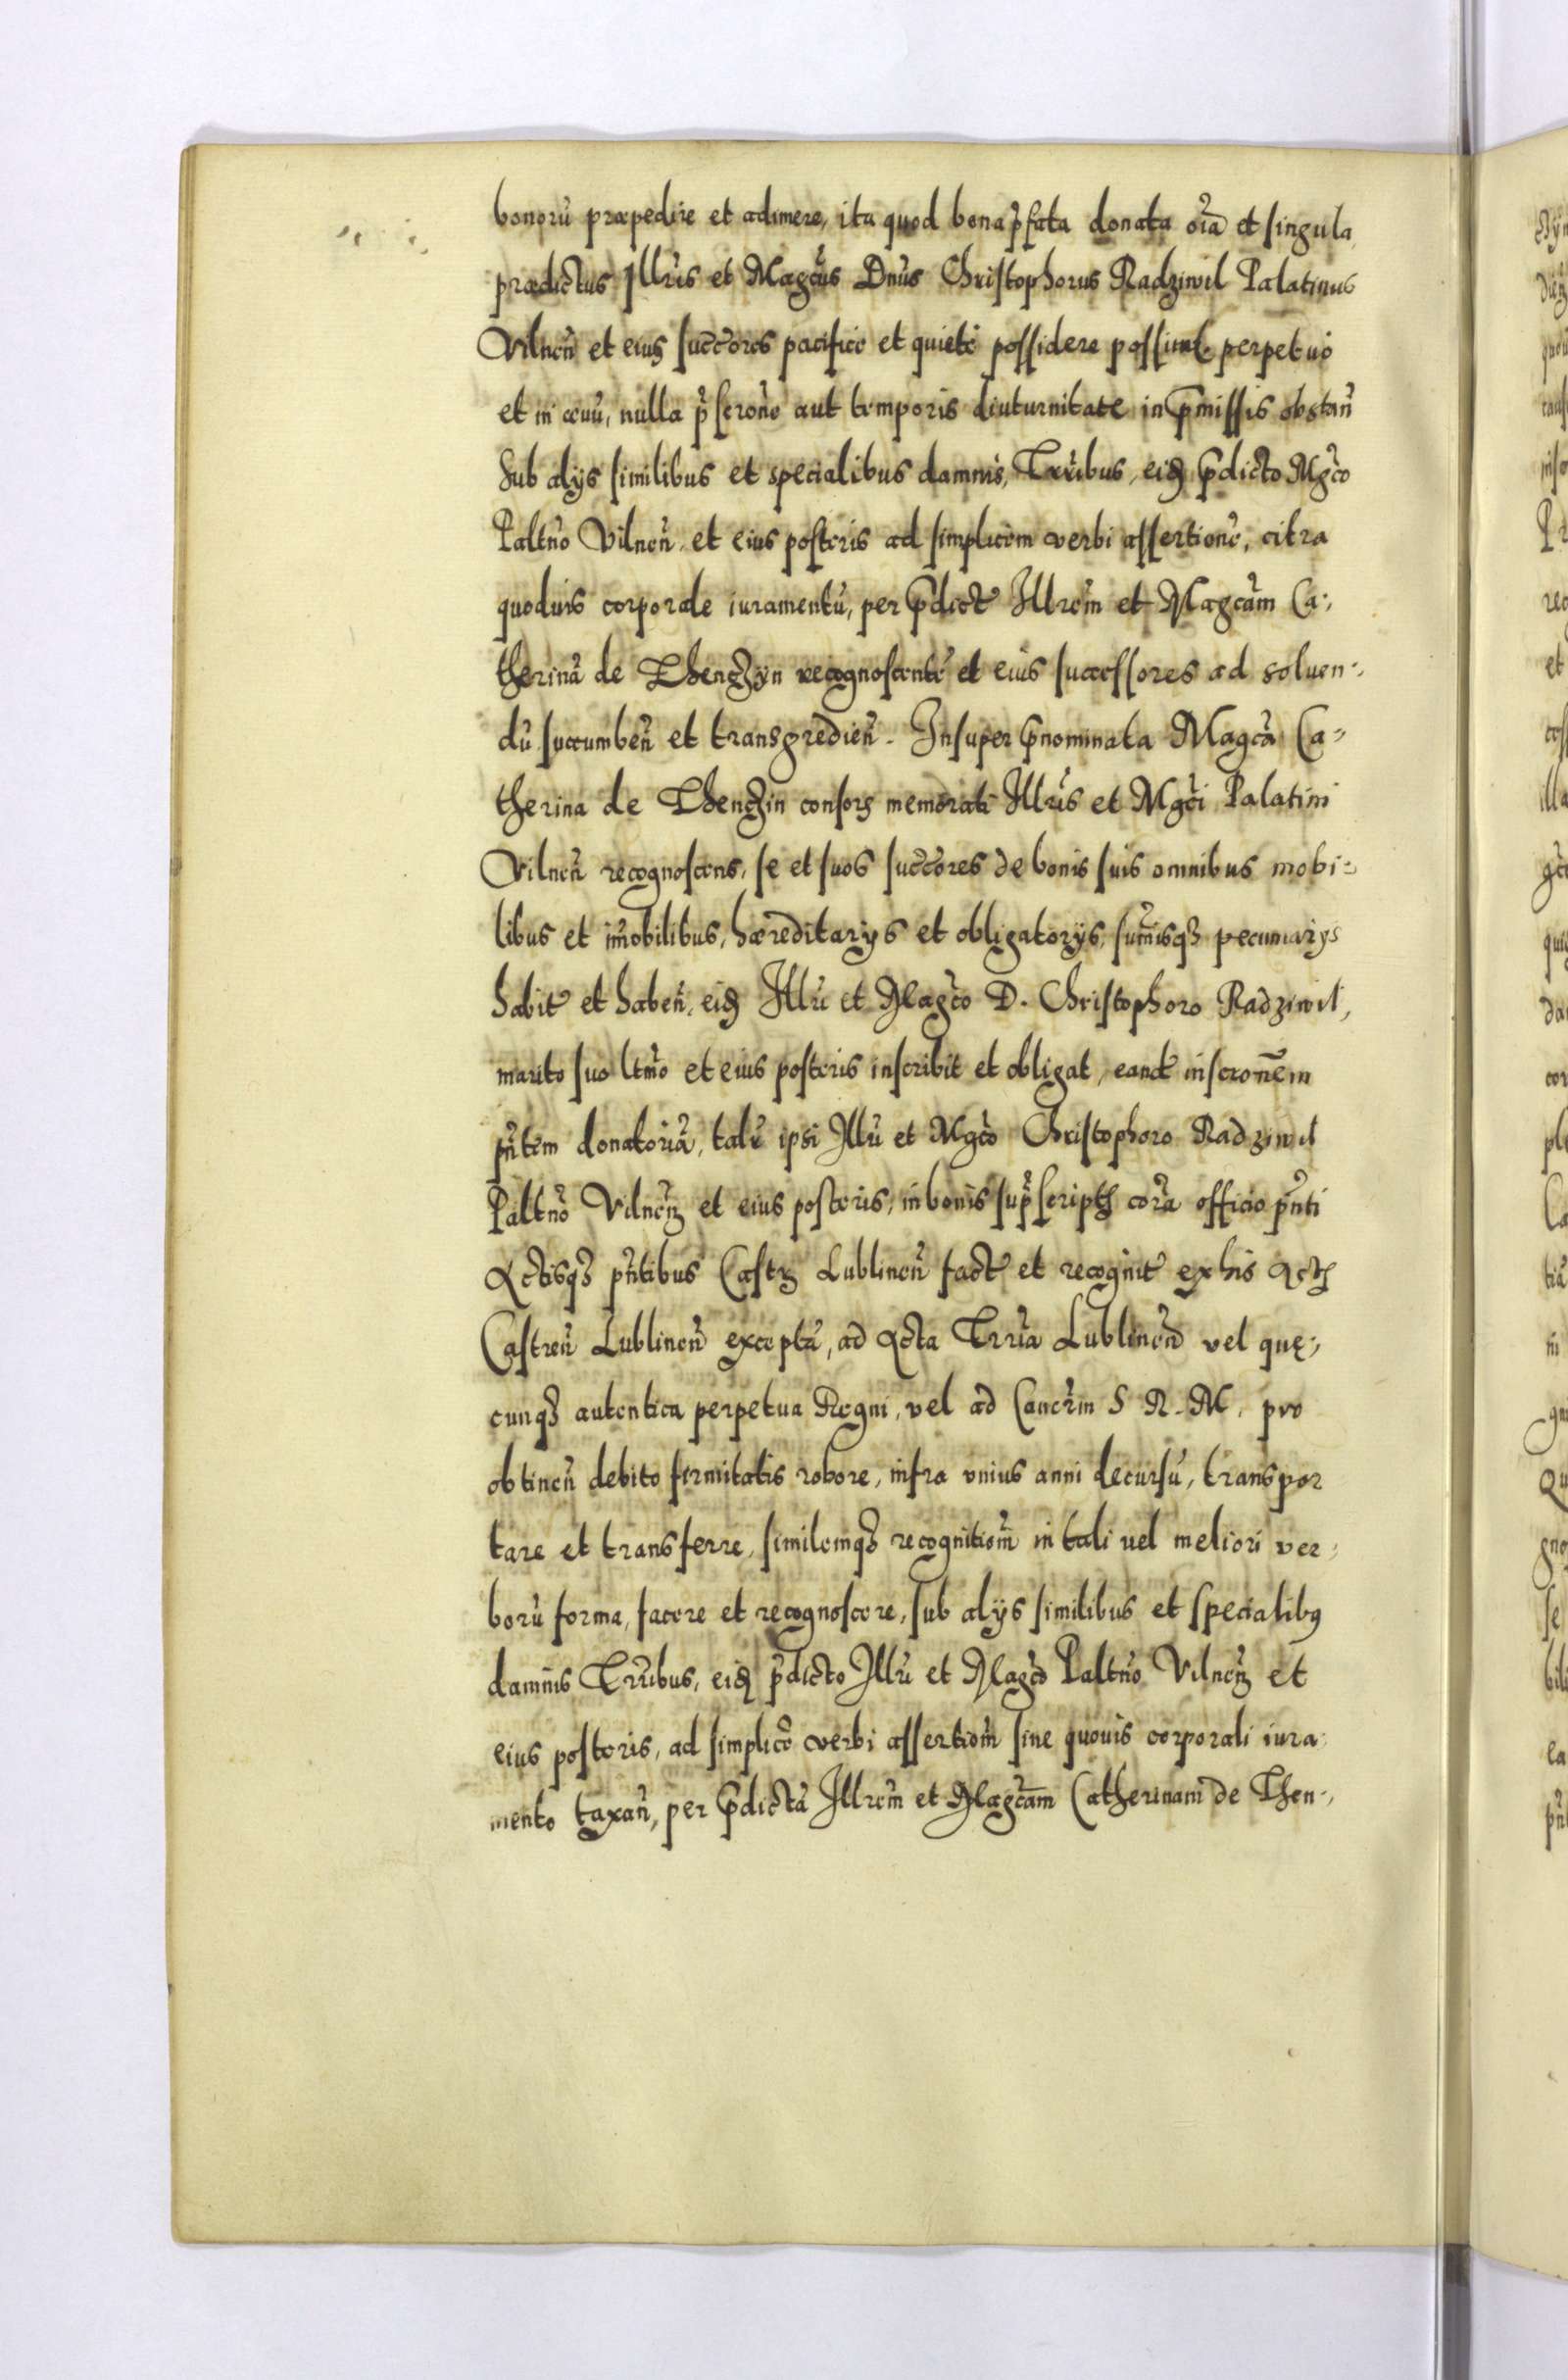 bonorũ præpedire et adimere, ita quod bona p̃fata donata oĩa et singula
prædictus Illũs et Magcũs Dnũs Christophorus Radziwil Palatinus
Vilnẽn et eius succ̃ores pacifice et quiete possidere possint perpetuo
et in æuũ, nulla p̃scronẽ aut temporis diuturnitate in p̃missis obstañ
Sub alys similibus et specialibus damnis, Trr̃ibus, eiđ p̃dicto Mgc̃o
Paltñо Vilneñ et eius posteris ad simplicem verbi assertionẽ, citra
quoduis corporale iuramentũ, per p̃dict̃ Illrem̃ et Magcãm Ca,
therinã de Thenczÿn recognoscentẽ et eius successores ad soluen,
dũ succumbeñ et transgredieñ. Insuper p̃nominata Magcã Ca,
therina de Thenczin consors memorati Illrĩs et Mgc̃i Palatini
Vilneñ recognoscens, se et suos succ̃ores de bonis suis omnibus mobi-
libus et im̃obilibus, hæreditarys et obligatorÿs, sum̃isqʒ pecuniarys
habit̃ et habeñ, eiđ Illrĩ et Magc̃o D. Christophoro Radziwil,
marito suo ltm̃o et eius posteris inscribit et obligat, eand̃ inscronẽm
pñtem donatoriã, talẽ ipsi Illrĩ et Mgc̃o Christophoro Radziwil
Paltñо Vilneñ et eius posteris, in bonis sup̃scriptʒ corã officio pñti
Actisqʒ pñtibus Castrʒ Lublineñ fact̃ et recognit̃ ex his Actʒ
Castreñ Lublineñ exceptã, ad Acta Trrĩa Lublineñ vel quę,
cunqʒ autentica perpetua Regni, vel ad Cancrĩm S R. M. pro
obtineñ debito firmitatis robore, infra vnius anni decursũ, transpor
tare et transferre, similemqʒ recognitiom̃ in tali uel meliori ver,
borũ forma, facere et recognoscere, sub alÿs similibus et specialibꝯ
damnis Trr̃ibus, eiđ p̃dicto Illrĩ et Magc̃o Paltñо Vilneñ et
eius posteris, ad simplicẽ verbi assertiom̃ sine quouis corporali iura
mento taxañ, per p̃dictã Illrem̃ et Magcãm Catherinam de Then,